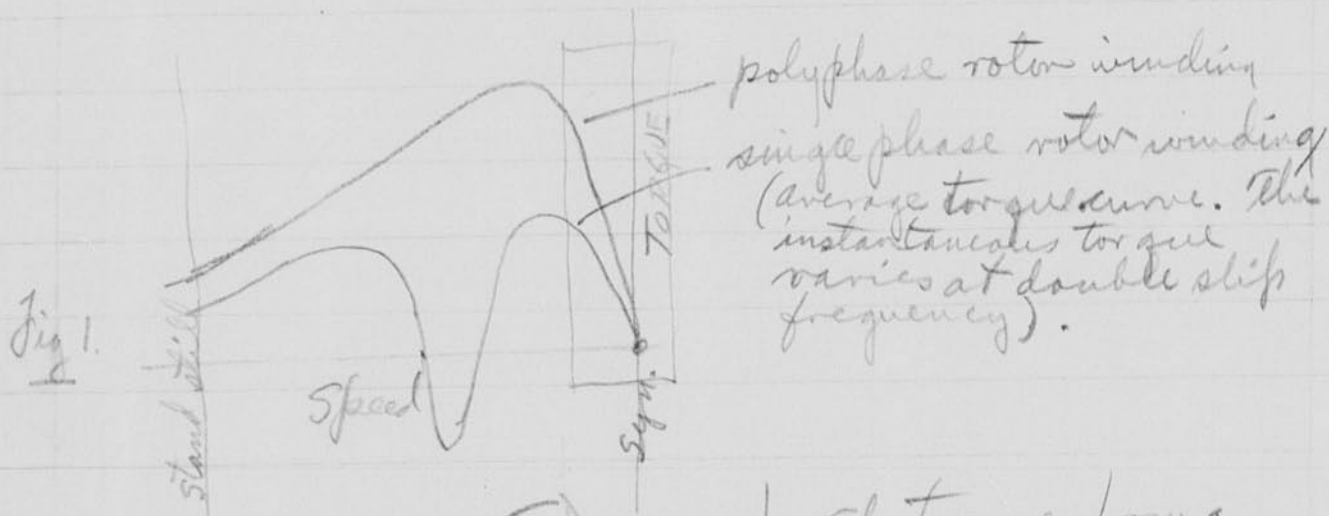 polyphase rotor winding
single phase rotor winding
(average torque curve. The
instantaneous torque
varies at double slip
frequency).
TORQUE
Fig 1.
Stand still
Speed
Syn.